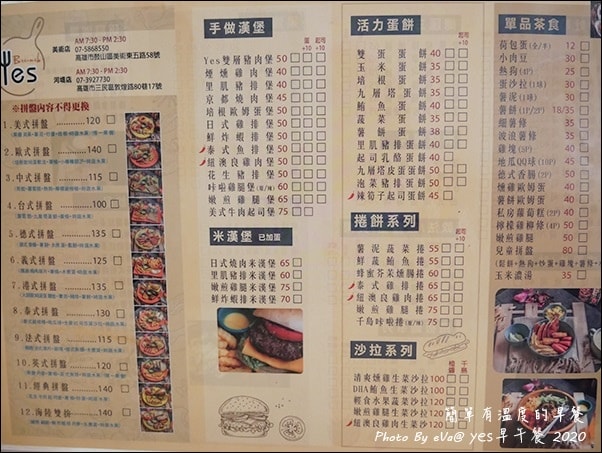 Yes
Brunch
AM 7:30 - PM 2:30
美術店 07-5868550
高雄市鼓山區美術東五路58號
AM 7:30 - PM 2:30
河堤店 07-3927730
高雄市三民區敦煌路80巷17號
※拼盤內容不得更換
1.美式拼盤 120
2.歐式拼盤 135
3.中式拼盤 115
4.台式拼盤 100
5.德式拼盤 135
6.義式拼盤 135
7.港式拼盤 135
8.泰式拼盤 130
9.法式拼盤 115
10.英式拼盤 130
11.經典拼盤 120
12.海陸雙拚 140
手做漢堡
蛋 起司
+10 +10
Yes雙層豬肉堡 50
煙燻雞肉堡 50
里肌豬排堡 50
京都燒肉堡 45
培根歐姆蛋堡 50
日式雞排堡 50
鮮炸蝦排堡 50
泰式魚排堡 50
紐澳良雞肉堡 50
花生豬排堡 50
咔啦雞腿堡(原/辣) 60
嫩煎雞腿堡 60
美式牛肉起司堡 75
米漢堡 已加蛋
日式燒肉米漢堡 65
里肌豬排米漢堡 60
嫩煎雞腿米漢堡 70
鮮炸蝦排米漢堡 70
活力蛋餅
起司
+10
雙蛋蛋餅 40
玉米蛋餅 35
培根蛋餅 35
九層塔蛋餅 35
鮪魚蛋餅 40
蔬菜蛋餅 35
薯餅蛋餅 38
里肌豬排蛋餅 40
起司乳酪蛋餅 40
九層塔皮蛋蛋餅 50
泡菜豬排蛋餅 50
辣筍子起司蛋餅 45
捲餅系列
起司
+10
薯泥蔬菜捲 55
鮮蔬鮪魚捲 55
蜂蜜芥茉燻腸捲 60
日式雞排捲 65
紐澳良雞肉捲 65
嫩煎雞腿捲 70
千島咔啦捲(原/辣) 70
沙拉系列
和風 千島
清爽燻雞生菜沙拉 100
DHA鮪魚生菜沙拉 100
輕食水果蔬菜沙拉 100
嫩煎雞腿生菜沙拉 120
紐澳良雞肉生菜沙拉 120
單品茶食
荷包蛋(全/半) 12
小肉豆 30
熱狗(4P) 25
蛋沙拉(1球) 30
薯泥(1球) 30
薯餅(1P/2P) 18/35
細薯條 35
波浪薯條 45
雞塊(5P) 40
地瓜QQ球(10P) 35
德式香腸(2P) 50
燻雞歐姆蛋 50
培根歐姆蛋 50
私房蘿蔔糕(2P) 40
檸檬雞柳條(4P) 50
嫩煎雞腿 50
兒童拼盤 80
(鬆餅+熱狗+炒蛋+雞塊+薯條+
玉米濃湯 35
簡單有溫度的早餐
Photo By eVa@ yes早午餐 2020